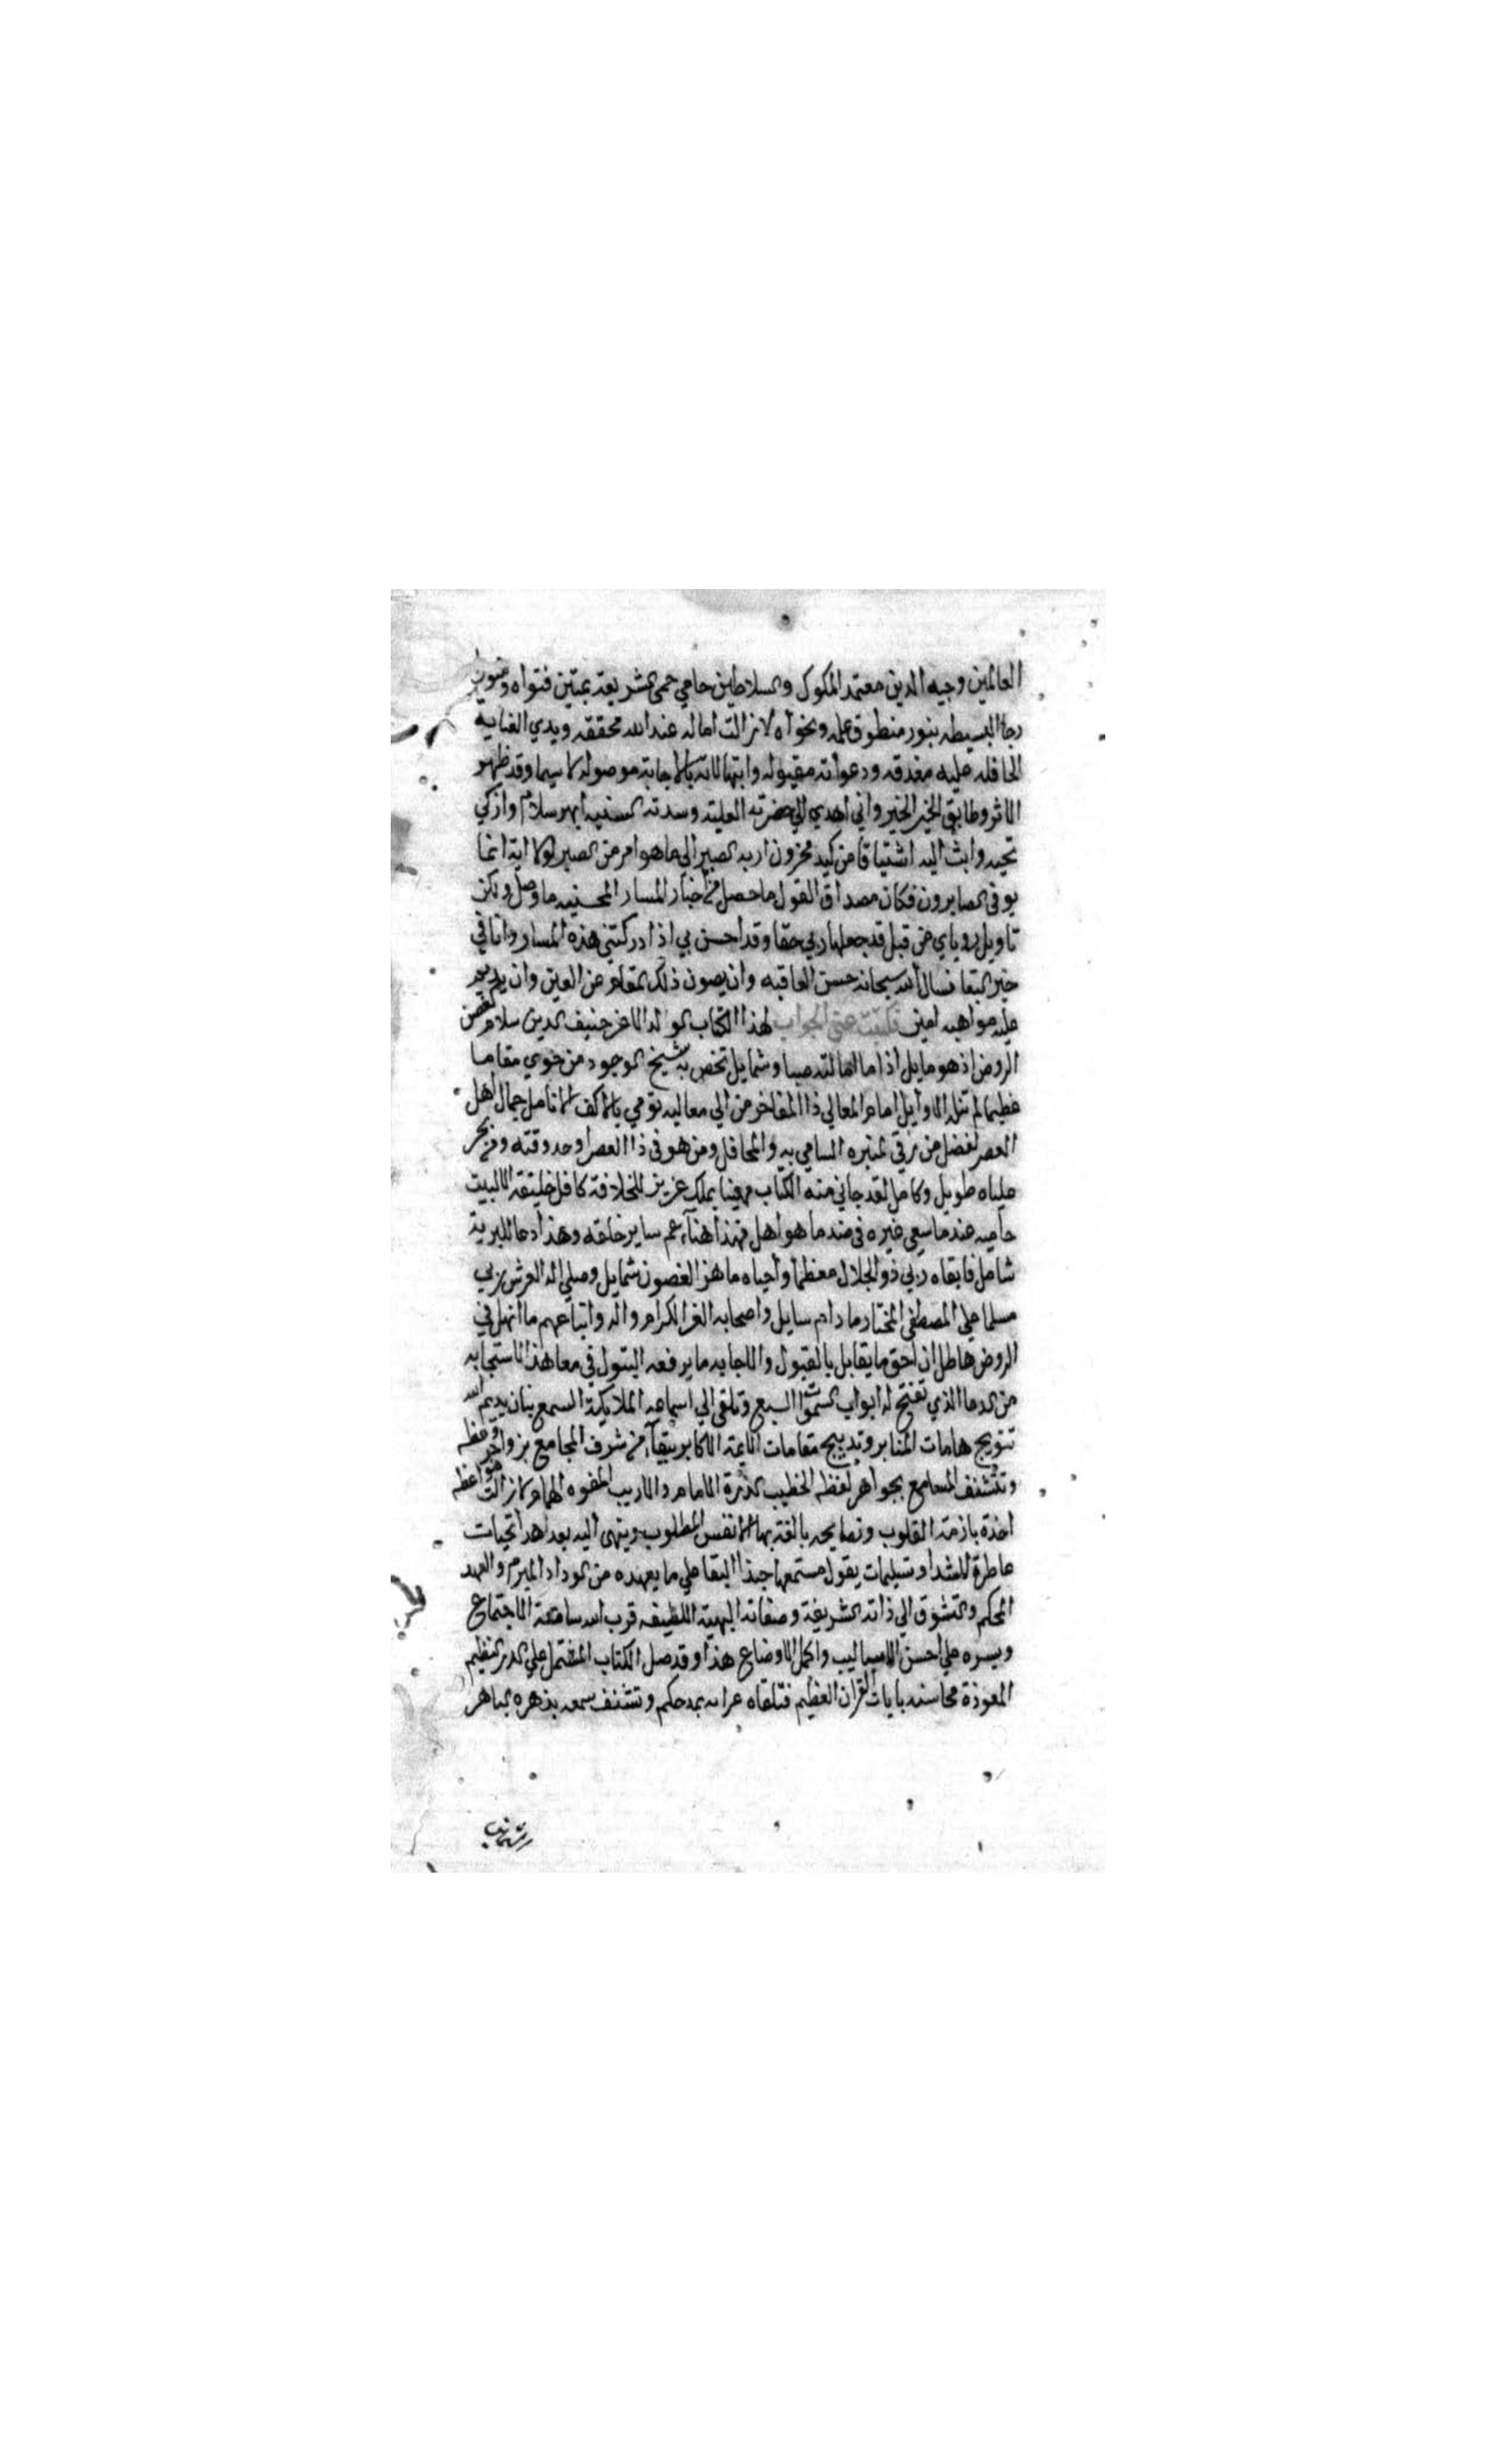 العالمين وجيه الدين معتمد الملوك والسلاطين حامي حمى الشريعة بمتين فتواه
رجا البسيطه بنور منطوق علمه وفحواه لا زالت اماله عند الله محققه وبدي العنايه
الحافله عليه مغدقه ودعواته مقبوله وابتهالاته بالاجابة موصوله لا سيما وقد ظهر
الاثر وطابق الخبر الخبر واني اهدي الي حضرته العلية وسدته السنيه ابهر سلام وازكي
تحيه وابث اليه اشتياقا من كبد محزون اربه الصبر الي ما هو امر من الصبر لولا اية انما
يوفى الصابرون فكان مصداق القول ما حصل من اخبار المسار ما وصل
تاويل روياي من قبل قد جعلها ربي حقا وقد احسن بي اذ ادركتني هذه المسار وانا في
خير البقا نسال الله سبحانه حسن العاقبه وان يصون ذلك المقام عن العين وان يديم
عليه مواهبه امين فكتبت عن الجواب لهذا الكتاب الولد الاعز حنيف الدين سلام كغصن
الروض اذ هو مايل اذا ما امالته صبا وشمايل تخص به شيخ الوجود من حوي مقاما
عظيما لم تنله الاوايل امام المعالي ذا المفاخر من الي معاليه تومي بالاكف الانامل جمال اهل
العصر افضل من رقي لمنبره السامي به والمحافل ومن هو في ذا العصر اوحد وقته ومن بحر
علياه طويل وكامل لقد جاني منه الكتاب مهنيا بملك عزيز للخلافة كافل خليقة الالبيت
حاميه عندما سعي غيره في ضد ما هو اهل فهذا هناء عم ساير خلقه وهذا دعا للبرية
شامل فابقاه ربي ذو الجلال معظما واحياه ما هز الغصون شمايل وصلي اله العرش ربي
مسلما علي المصطفي المختار ما دام سايل واصحابه الغر الكرام واله واتباعهم ما انهل في
الروض هاطل ان احق ما يقابل بالقبول والاجابه ما يرفعه البتول في معاهد الاستجابه
من الدعا الذي تفتح له ابواب السموات السبع وتلقي الي اسماعه الملايكة السمع بان يديم الله
تتويج هامات المنابر وتدبيج مقامات الايمة الاكابر ببقاء من شرف المجامع بزواجر وعظه
وتشنف المسامع بجواهر لفظه الخطيب الامام والاديب المفوه الهمام لا زالت مواعظه
اخذة بازمة القلوب ونصايحه بالغة بها الانفس المطلوب وينهى اليه بعد اهدا تحيات
عاطرة للشدا وتسليمات يقول مستمعها حبذا البقا علي ما يعهده من الوداد المبرم والعهد
المحكم والتشوق الي ذاته الشريفة وصفاته البهية اللطيفه قرب الله ساعة الاجتماع
ويسره علي احسن الاساليب واكمل الاوضاع هذا وقد صل الكتاب المشتمل علي الدر النظيم
المعوذة محاسنه بايات القران العظيم فتلقاه بمدحكم وتشنف سمعه بزهره الباهر